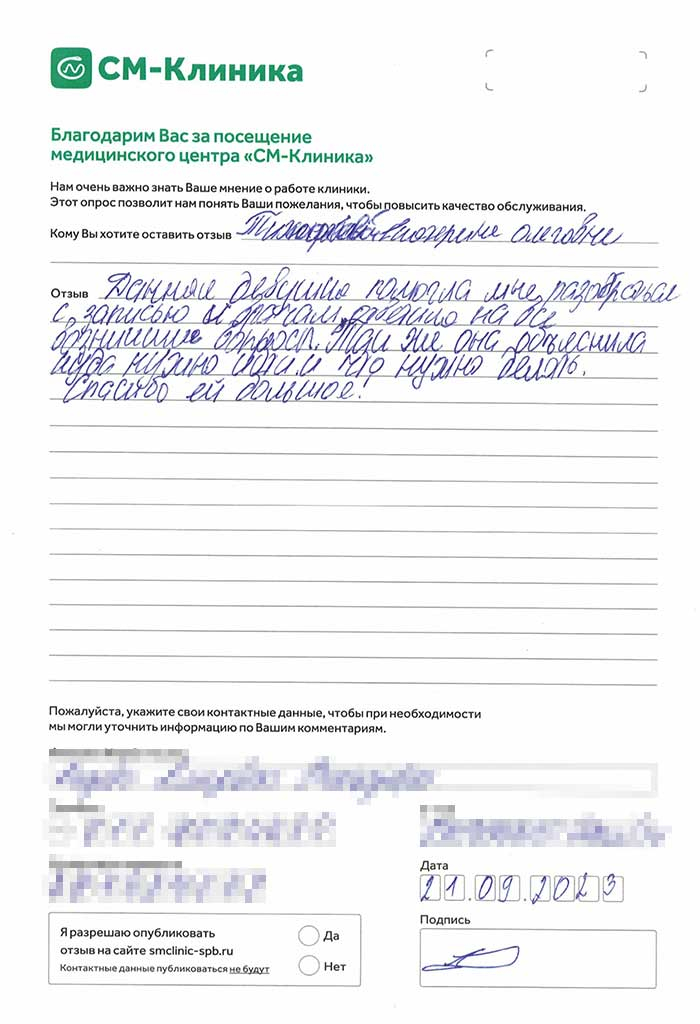 СМ-Клиника
Благодарим Вас за посещение
медицинского центра «СМ-Клиника»
Нам очень важно знать Ваше мнение о работе клиники.
Этот опрос позволит нам понять Ваши пожелания, чтобы повысить качество обслуживания.
Кому Вы хотите оставить отзыв олеговне
Отзыв Данная девушка помогла мне, разобраться
с записью к врачам, на все
вопросы. Так же она объяснила
куда нужно идти и что нужно делать.
Спасибо ей большое!
Пожалуйста, укажите свои контактные данные, чтобы при необходимости
мы могли уточнить информацию по Вашим комментариям.
Дата
21.09.2023
Подпись
Я разрешаю опубликовать
отзыв на сайте smclinic-spb.ru
Контактные данные публиковаться не будут
Да
Нет